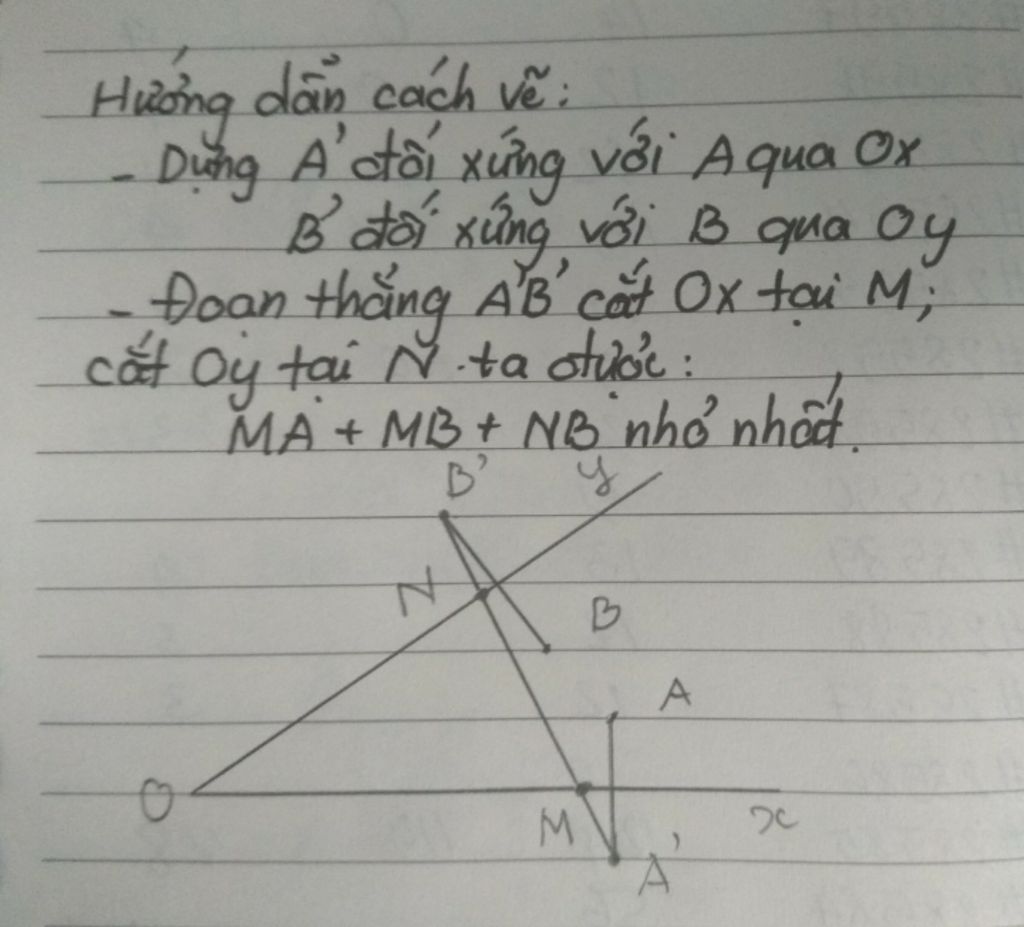 Hướng dẫn cách vẽ:
- Dựng A' đối xứng với A qua Ox
B' đối xứng với B qua Oy
- Đoạn thẳng A'B' cắt Ox tại M;
cắt Oy tại N. ta được:
MA + MB + NB nhỏ nhất.
B' y
N
B
A
O
M x
A'